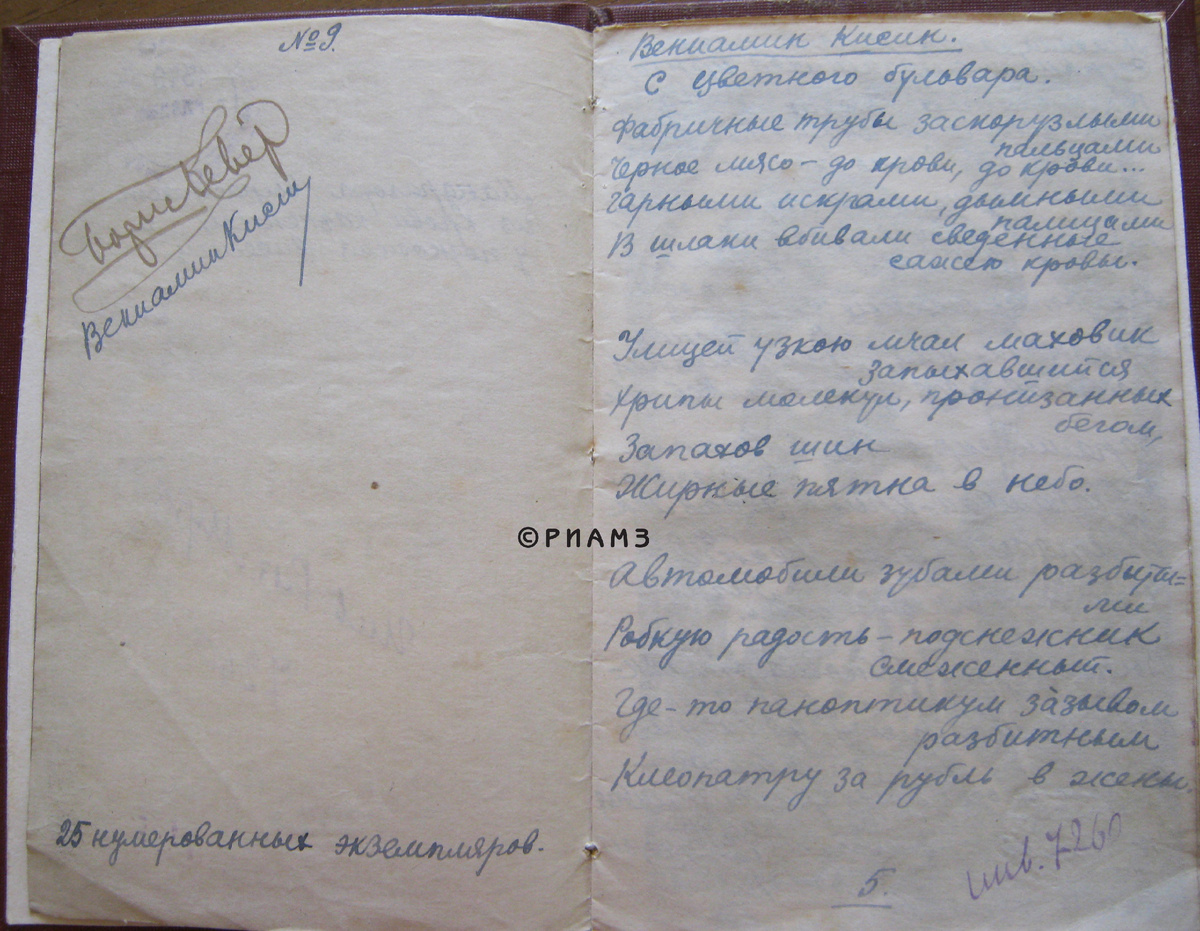 № 9.
Борис Кевер
Вениамин Кисин
25 нумерованных экземпляров.
Вениамин Кисин.
С Цветного бульвара.
Фабричные трубы заскорузлыми
пальцами
Черное мясо – до крови, до крови...
Гарными искрами, дымными
палицами
В шлаки вбивали сведенные
сажею кровы.
Улицей узкою мчал маховик
запыхавшийся
Хрипы молекул, пронизанных
бегом,
Запахов шин
Жирные пятна в небо.
Автомобили зубами разбиты=
ми
Робкую радость – подснежник
смеженный.
Где-то паноптикум зазывом
разбитным
Клеопатру за рубль в жены
5.
инв. 7260
©РИАМЗ